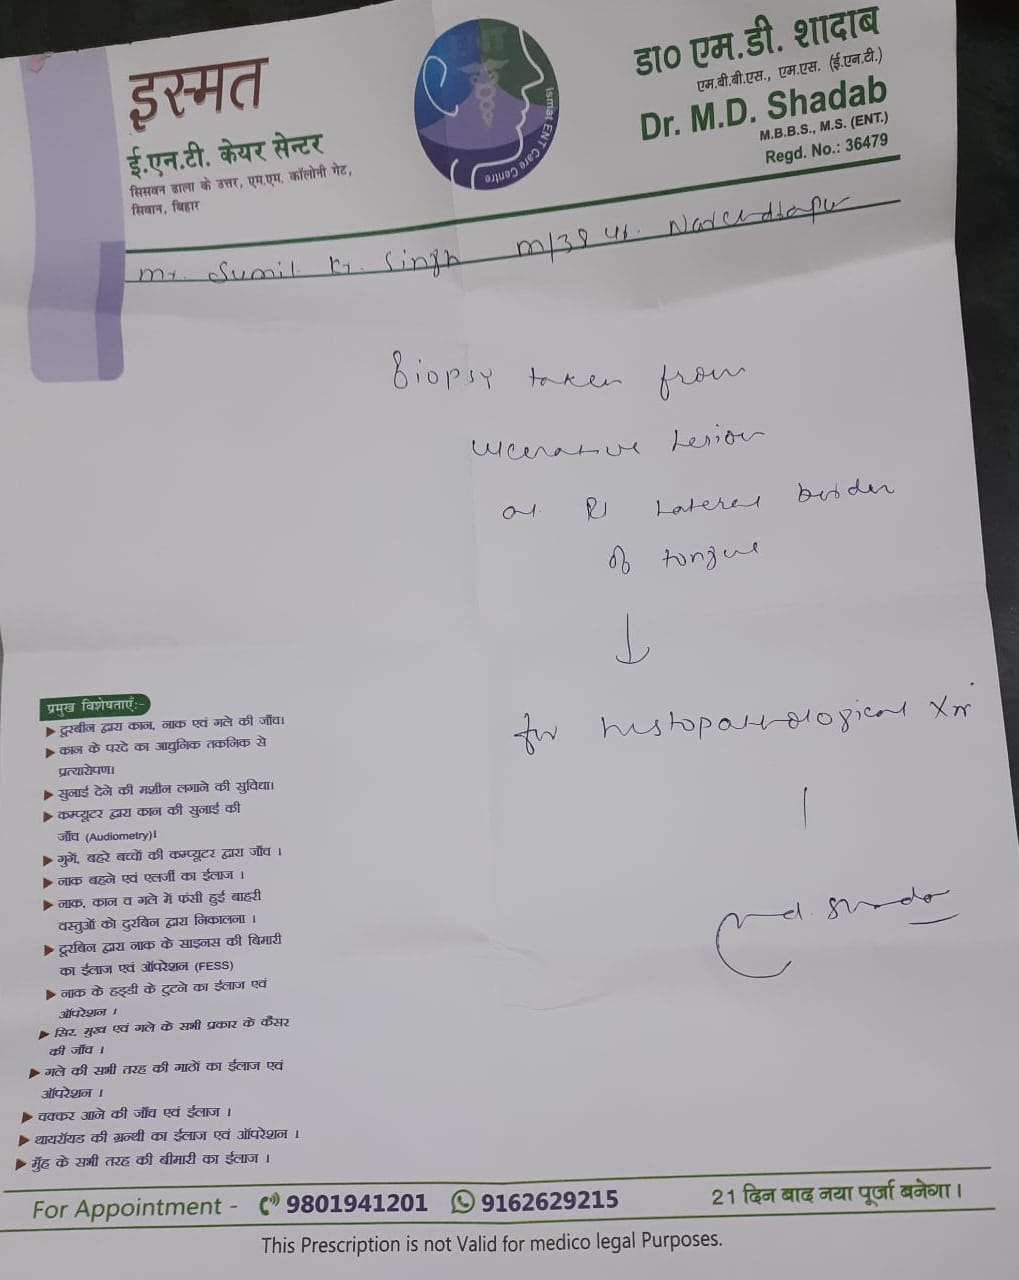 इस्मत
ई.एन.टी. केयर सेन्टर
सिसवन ढाला के उत्तर, एम.एम. कॉलोनी गेट,
सिवान, बिहार
Ismat ENT Care Centre
डा० एम.डी. शादाब
एम.बी.बी.एस., एम.एस. (ई.एन.टी.)
Dr. M.D. Shadab
M.B.B.S., M.S. (ENT.)
Regd. No.: 36479
Mr. Sumil Kr. Singh M/38 yr.
Biopsy taken from
ulcerative lesion
Rt lateral border
of tongue
↓
for histopathological Xn
Md. Shadab
प्रमुख विशेषताएँ:-
दूरबीन द्वारा कान, नाक एवं गले की जाँच।
कान के परदे का आधुनिक तकनिक से
प्रत्यारोपण।
सुनाई देने की मशीन लगाने की सुविधा।
कम्प्यूटर द्वारा कान की सुनाई की
जाँच (Audiometry)।
गुगें, बहरे बच्चों की कम्प्यूटर द्वारा जाँच ।
नाक बहने एवं एलर्जी का ईलाज ।
नाक, कान व गले में फंसी हुई बाहरी
वस्तुओं को दुरबिन द्वारा निकालना ।
दूरबिन द्वारा नाक के साइनस की बिमारी
का ईलाज एवं ऑपरेशन (FESS)
नाक के हड्डी के टुटने का ईलाज एवं
ऑपरेशन ।
सिर, मुख एवं गले के सभी प्रकार के कैंसर
की जाँच ।
गले की सभी तरह की गाठों का ईलाज एवं
ऑपरेशन ।
चक्कर आने की जाँच एवं ईलाज ।
थायरॉयड की ग्रन्थी का ईलाज एवं ऑपरेशन ।
मुँह के सभी तरह की बीमारी का ईलाज ।
For Appointment - 9801941201 9162629215
21 दिन बाद नया पूर्जा बनेगा।
This Prescription is not Valid for medico legal Purposes.